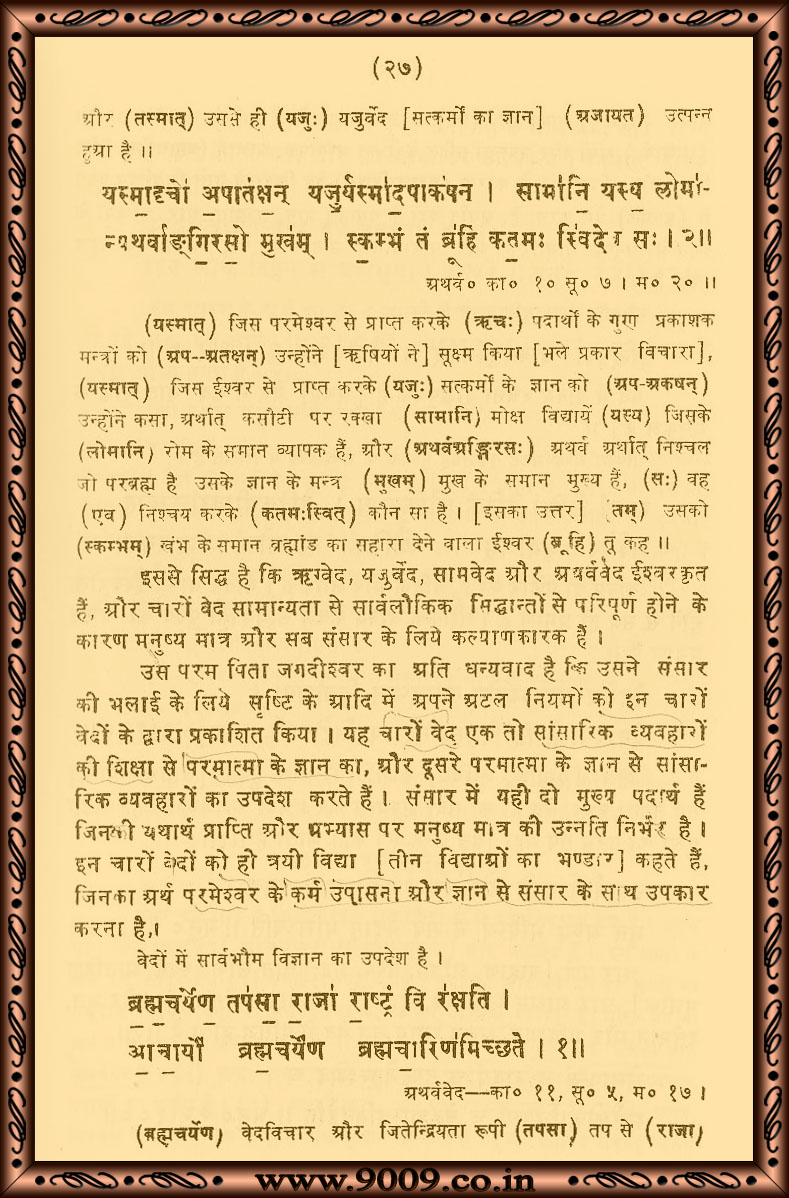 (२७)
और (तस्मात्) उससे ही (यजुः) यजुर्वेद [सत्कर्मों का ज्ञान] (अजायत) उत्पन्न
हुआ है ॥
यस्मा॒दृचो॑ अ॒पात॑क्ष॒न् यजु॒र्यस्मा॑द॒पाक॑षन् । सामा॑नि॒ यस्य॒ लोमा॑-
न्यथर्वाङ्गि॒रसो॒ मुख॑म् । स्क॒म्भं तं ब्रू॑हि कत॒मः स्वि॑दे॒व सः । २॥
अथर्व० का० १० सू० ७ । म० २० ॥
(यस्मात्) जिस परमेश्वर से प्राप्त करके (ऋचः) पदार्थों के गुण प्रकाशक
मन्त्रों को (अप--अतक्षन्) उन्होंने [ऋषियों ने] सूक्ष्म किया [भले प्रकार विचारा],
(यस्मात्) जिस ईश्वर से प्राप्त करके (यजुः) सत्कर्मों के ज्ञान को (अप-अकषन्)
उन्होंने कसा, अर्थात् कसौटी पर रक्खा (सामानि) मोक्ष विद्यायें (यस्य) जिसके
(लोमानि) रोम के समान व्यापक हैं, और (अथर्वअङ्गिरसः) अथर्व अर्थात् निश्चल
जो परब्रह्म है उसके ज्ञान के मन्त्र (मुखम्) मुख के समान मुख्य हैं, (सः) वह
(एव) निश्चय करके (कतमःस्वित्) कौन सा है । [इसका उत्तर] (तम्) उसको
(स्कम्भम्) खंभ के समान ब्रह्मांड का सहारा देने वाला ईश्वर (ब्रूहि) तू कह ॥
इससे सिद्ध है कि ऋग्वेद, यजुर्वेद, सामवेद और अथर्ववेद ईश्वरकृत
हैं, और चारों वेद सामान्यता से सार्वलौकिक सिद्धान्तों से परिपूर्ण होने के
कारण मनुष्य मात्र और सब संसार के लिये कल्याणकारक हैं ।
उस परम पिता जगदीश्वर का अति धन्यवाद है कि उसने संसार
की भलाई के लिये सृष्टि के आदि में अपने अटल नियमों को इन चारों
वेदों के द्वारा प्रकाशित किया । यह चारों वेद एक तो सांसारिक व्यवहारों
की शिक्षा से परमात्मा के ज्ञान का, और दूसरे परमात्मा के ज्ञान से सांसा-
रिक व्यवहारों का उपदेश करते हैं । संसार में यही दो मुख्य पदार्थ हैं
जिनकी यथार्थ प्राप्ति और अभ्यास पर मनुष्य मात्र की उन्नति निर्भर है ।
इन चारों वेदों को ही त्रयी विद्या [तीन विद्याओं का भण्डार] कहते हैं,
जिनका अर्थ परमेश्वर के कर्म उपासना और ज्ञान से संसार के साथ उपकार
करना है,।
वेदों में सार्वभौम विज्ञान का उपदेश है ।
ब्र॒ह्म॒चर्ये॑ण॒ तप॑सा॒ राजा॑ रा॒ष्ट्रं वि र॑क्षति ।
आ॒चा॒र्यो॑ ब्रह्म॒चर्ये॑ण ब्रह्मचा॒रिण॑मिच्छते । १॥
अथर्ववेद--का० ११, सू० ५, म० १७ ।
(ब्रह्मचर्येण) वेदविचार और जितेन्द्रियता रूपी (तपसा) तप से (राजा)
www.9009.co.in